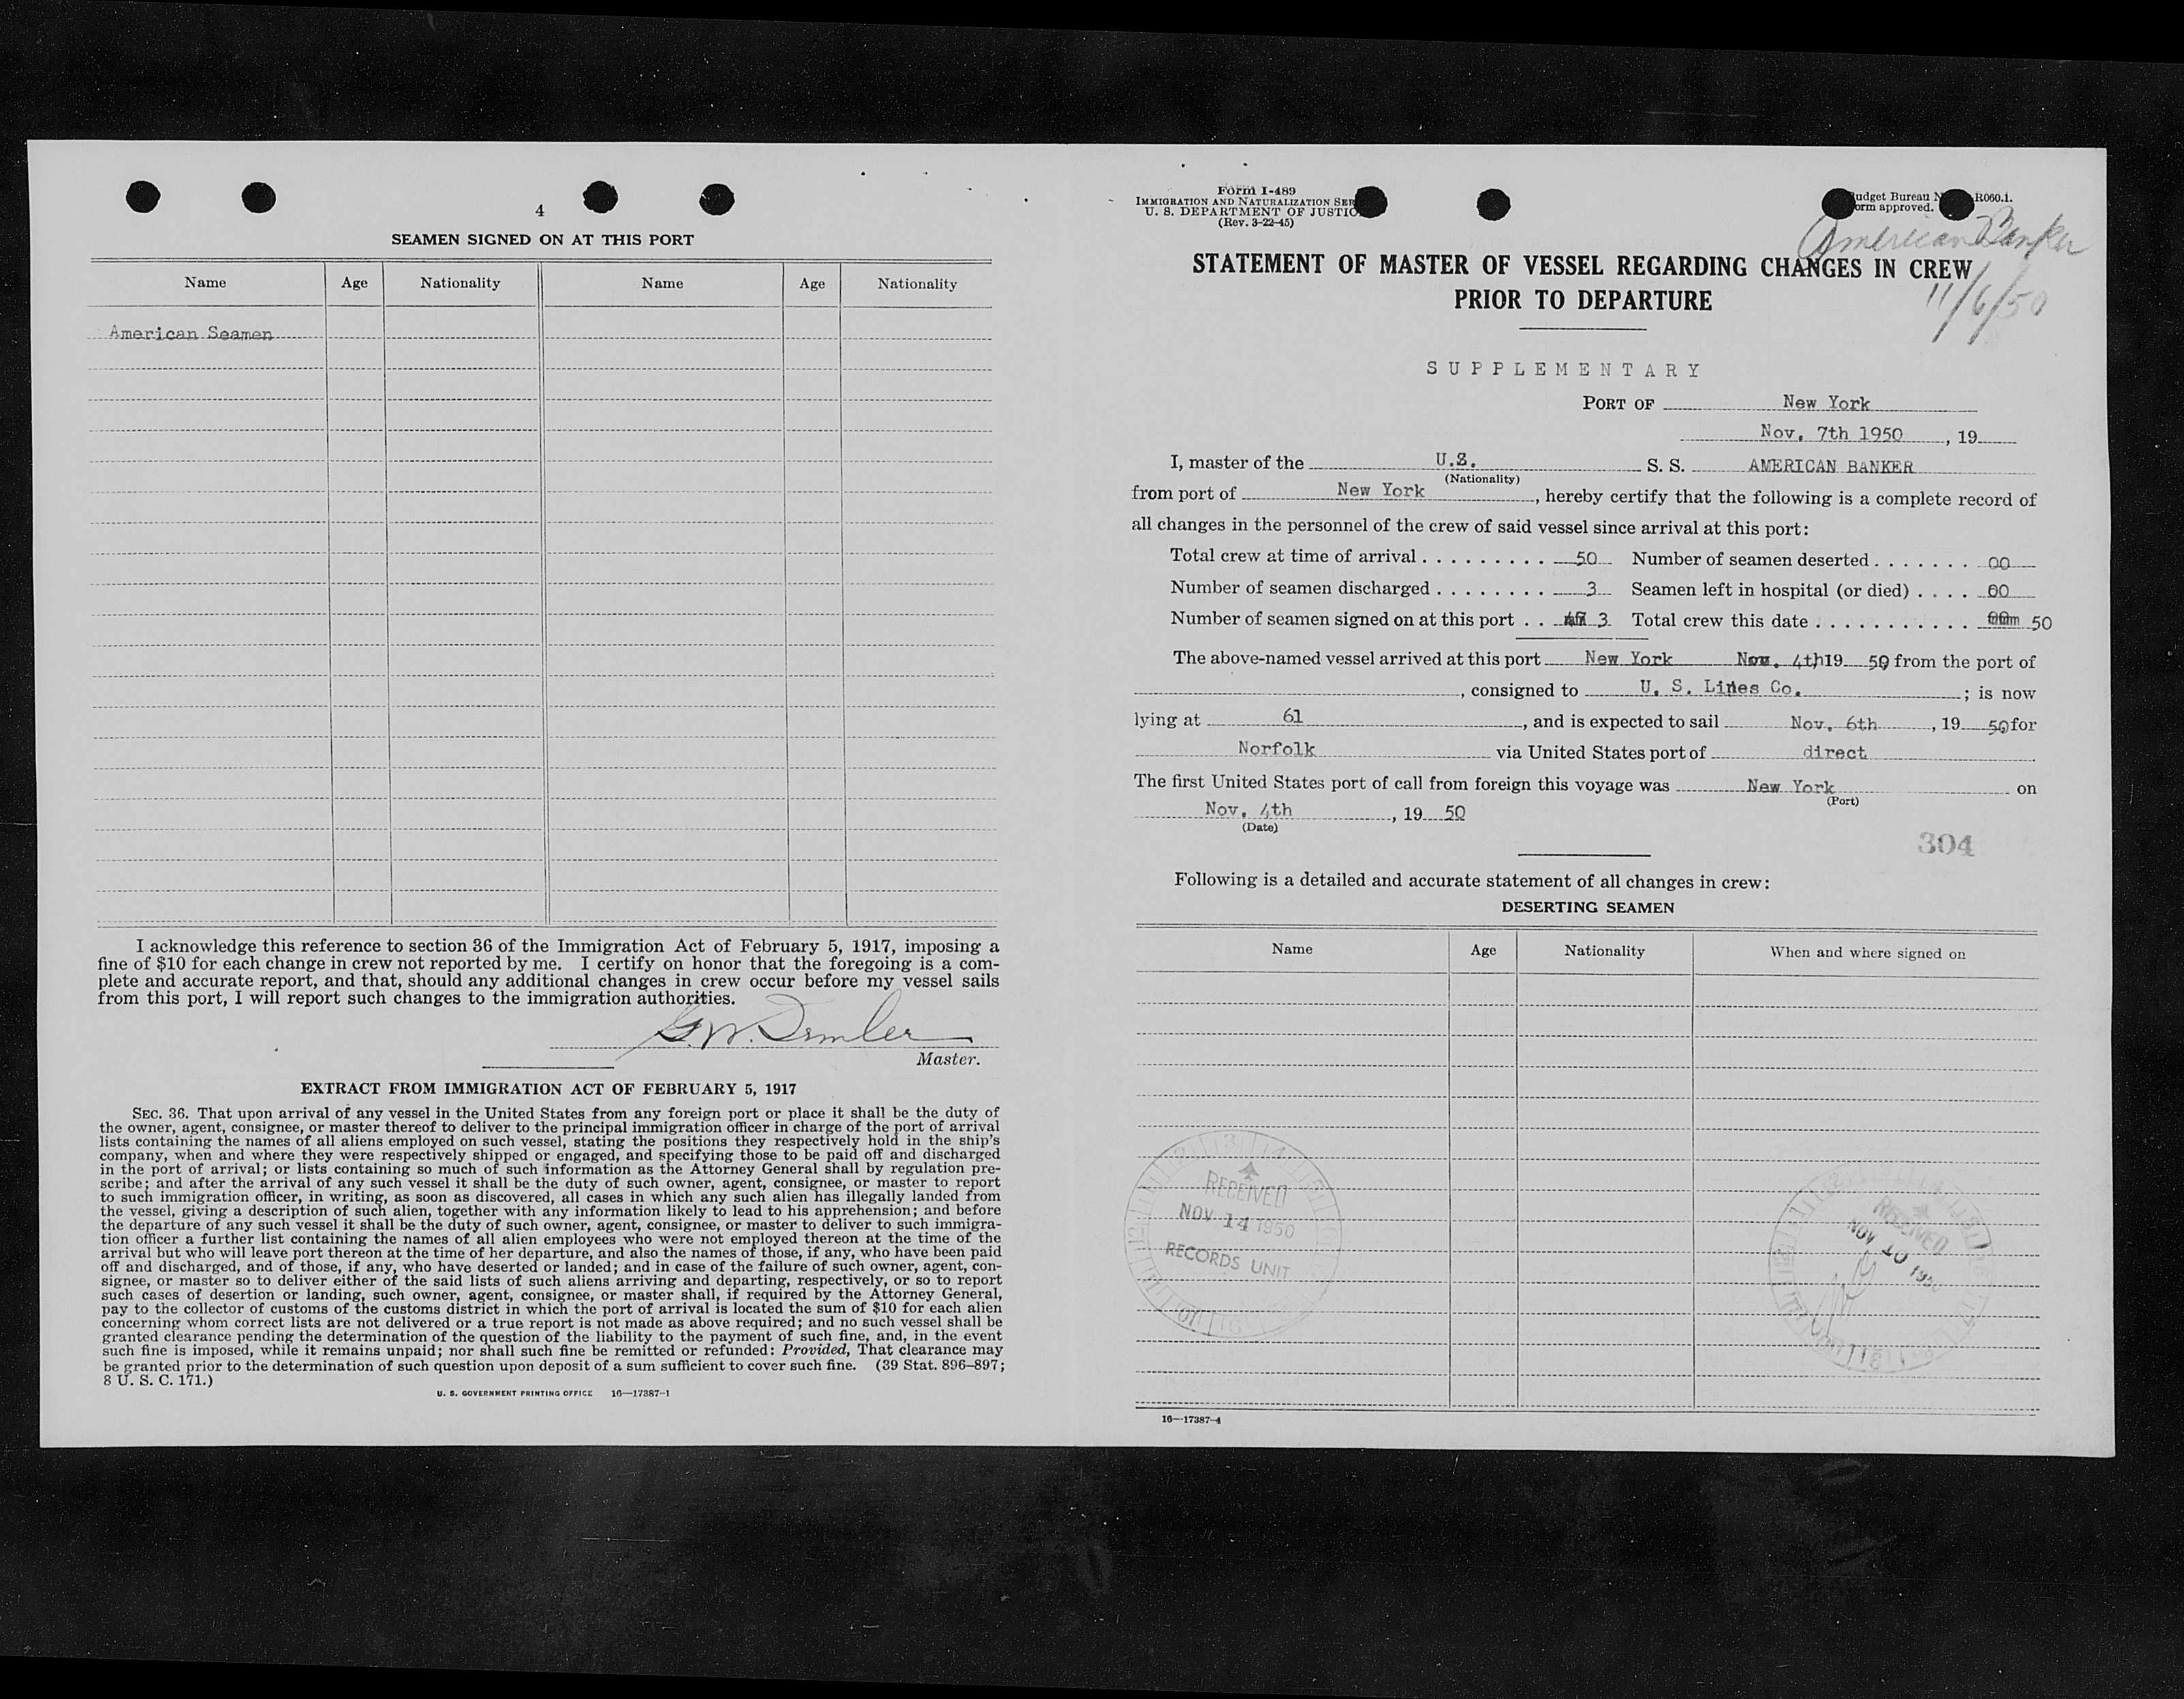 4
SEAMEN SIGNED ON AT THIS PORT
Name Age Nationality Name Age Nationality
American Seamen
I acknowledge this reference to section 36 of the Immigration Act of February 5, 1917, imposing a
fine of $10 for each change in crew not reported by me. I certify on honor that the foregoing is a com-
plete and accurate report, and that, should any additional changes in crew occur before my vessel sails
from this port, I will report such changes to the immigration authorities.
G. W.
Master.
EXTRACT FROM IMMIGRATION ACT OF FEBRUARY 5, 1917
SEC. 36. That upon arrival of any vessel in the United States from any foreign port or place it shall be the duty of
the owner, agent, consignee, or master thereof to deliver to the principal immigration officer in charge of the port of arrival
lists containing the names of all aliens employed on such vessel, stating the positions they respectively hold in the ship's
company, when and where they were respectively shipped or engaged, and specifying those to be paid off and discharged
in the port of arrival; or lists containing so much of such information as the Attorney General shall by regulation pre-
scribe; and after the arrival of any such vessel it shall be the duty of such owner, agent, consignee, or master to report
to such immigration officer, in writing, as soon as discovered, all cases in which any such alien has illegally landed from
the vessel, giving a description of such alien, together with any information likely to lead to his apprehension; and before
the departure of any such vessel it shall be the duty of such owner, agent, consignee, or master to deliver to such immigra-
tion officer a further list containing the names of all alien employees who were not employed thereon at the time of the
arrival but who will leave port thereon at the time of her departure, and also the names of those, if any, who have been paid
off and discharged, and of those, if any, who have deserted or landed; and in case of the failure of such owner, agent, con-
signee, or master so to deliver either of the said lists of such aliens arriving and departing, respectively, or so to report
such cases of desertion or landing, such owner, agent, consignee, or master shall, if required by the Attorney General,
pay to the collector of customs of the customs district in which the port of arrival is located the sum of $10 for each alien
concerning whom correct lists are not delivered or a true report is not made as above required; and no such vessel shall be
granted clearance pending the determination of the question of the liability to the payment of such fine, and, in the event
such fine is imposed, while it remains unpaid; nor shall such fine be remitted or refunded: Provided, That clearance may
be granted prior to the determination of such question upon deposit of a sum sufficient to cover such fine. (39 Stat. 896-897;
8 U. S. C. 171.)
U. S. GOVERNMENT PRINTING OFFICE 16—17387-1
Form I-489
IMMIGRATION AND NATURALIZATION SER
U. S. DEPARTMENT OF JUSTIC
(Rev. 3-22-45)
udget Bureau N R060.1.
orm approved.
American Banker
11/6/50
STATEMENT OF MASTER OF VESSEL REGARDING CHANGES IN CREW
PRIOR TO DEPARTURE
SUPPLEMENTARY
PORT OF New York
Nov. 7th 1950, 19
I, master of the U.S. S. S. AMERICAN BANKER
(Nationality)
from port of New York, hereby certify that the following is a complete record of
all changes in the personnel of the crew of said vessel since arrival at this port:
Total crew at time of arrival . . . . . . . . . 50 Number of seamen deserted . . . . . . . 00
Number of seamen discharged . . . . . . . . 3 Seamen left in hospital (or died) . . . . 00
Number of seamen signed on at this port . . 3 Total crew this date . . . . . . . . . . . 50
The above-named vessel arrived at this port New York Nov. 4th 19 50 from the port of
, consigned to U. S. Lines Co. ; is now
lying at 61, and is expected to sail Nov. 6th, 19 50 for
Norfolk via United States port of direct
The first United States port of call from foreign this voyage was New York on
(Port)
Nov. 4th, 19 50
(Date)
304
Following is a detailed and accurate statement of all changes in crew:
DESERTING SEAMEN
Name Age Nationality When and where signed on
RECEIVED
NOV 14 1950
RECORDS UNIT
RECEIVED
NOV 10 1950
16—17387-4